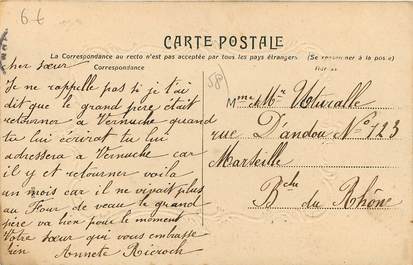 66
CARTE POSTALE
La Correspondance au recto n'est pas acceptée par tous les pays étrangers (Se renseigner à la poste)
Correspondance
58
cher sœur
Je ne rappelle pas si je t'ai
dit que le grand père était
retourner a Vernuche quand
tu lui écrirat tu lui
adressera a Vernuche car
il y et retourner voila
un mois car il ne vivait plus
au Four de veau le grand
père va bien pour le moment
Votre sœur qui vous embrasse
bien Annete
Mme
rue D'andou No 123
Marseille
B. du Rhône